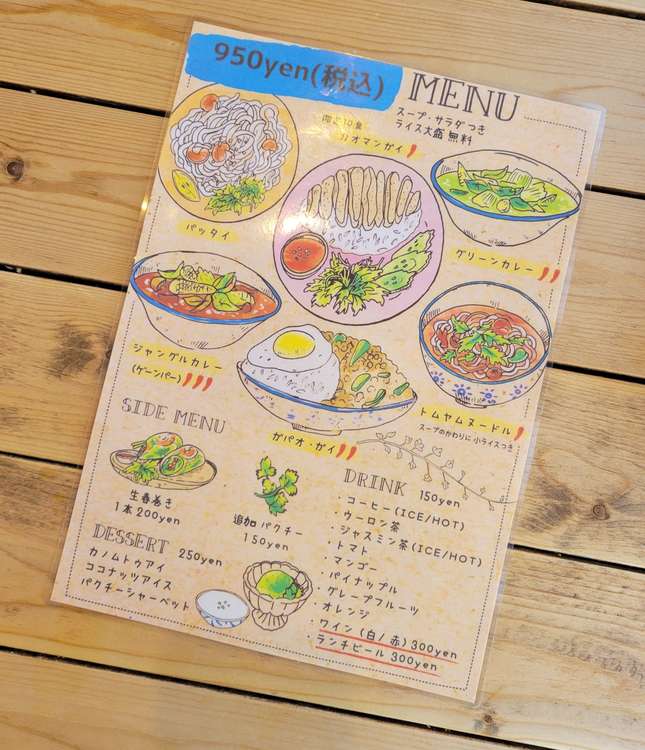 950yen(税込)
MENU
スープ・サラダつき
ライス大盛 無料
限定10食
カオマンガイ
パッタイ
グリーンカレー
ジャングルカレー
(ゲーンパー)
ガパオ・ガイ
トムヤムヌードル
スープのかわりに小ライスつき
SIDE MENU
生春巻き
1本200yen
追加パクチー
150yen
DESSERT 250yen
カノムトゥアイ
ココナッツアイス
パクチーシャーベット
DRINK 150yen
・コーヒー(ICE/HOT)
・ウーロン茶
・ジャスミン茶(ICE/HOT)
・トマト
・マンゴー
・パイナップル
・グレープフルーツ
・オレンジ
・ワイン(白/赤)300yen
・ランチビール 300yen